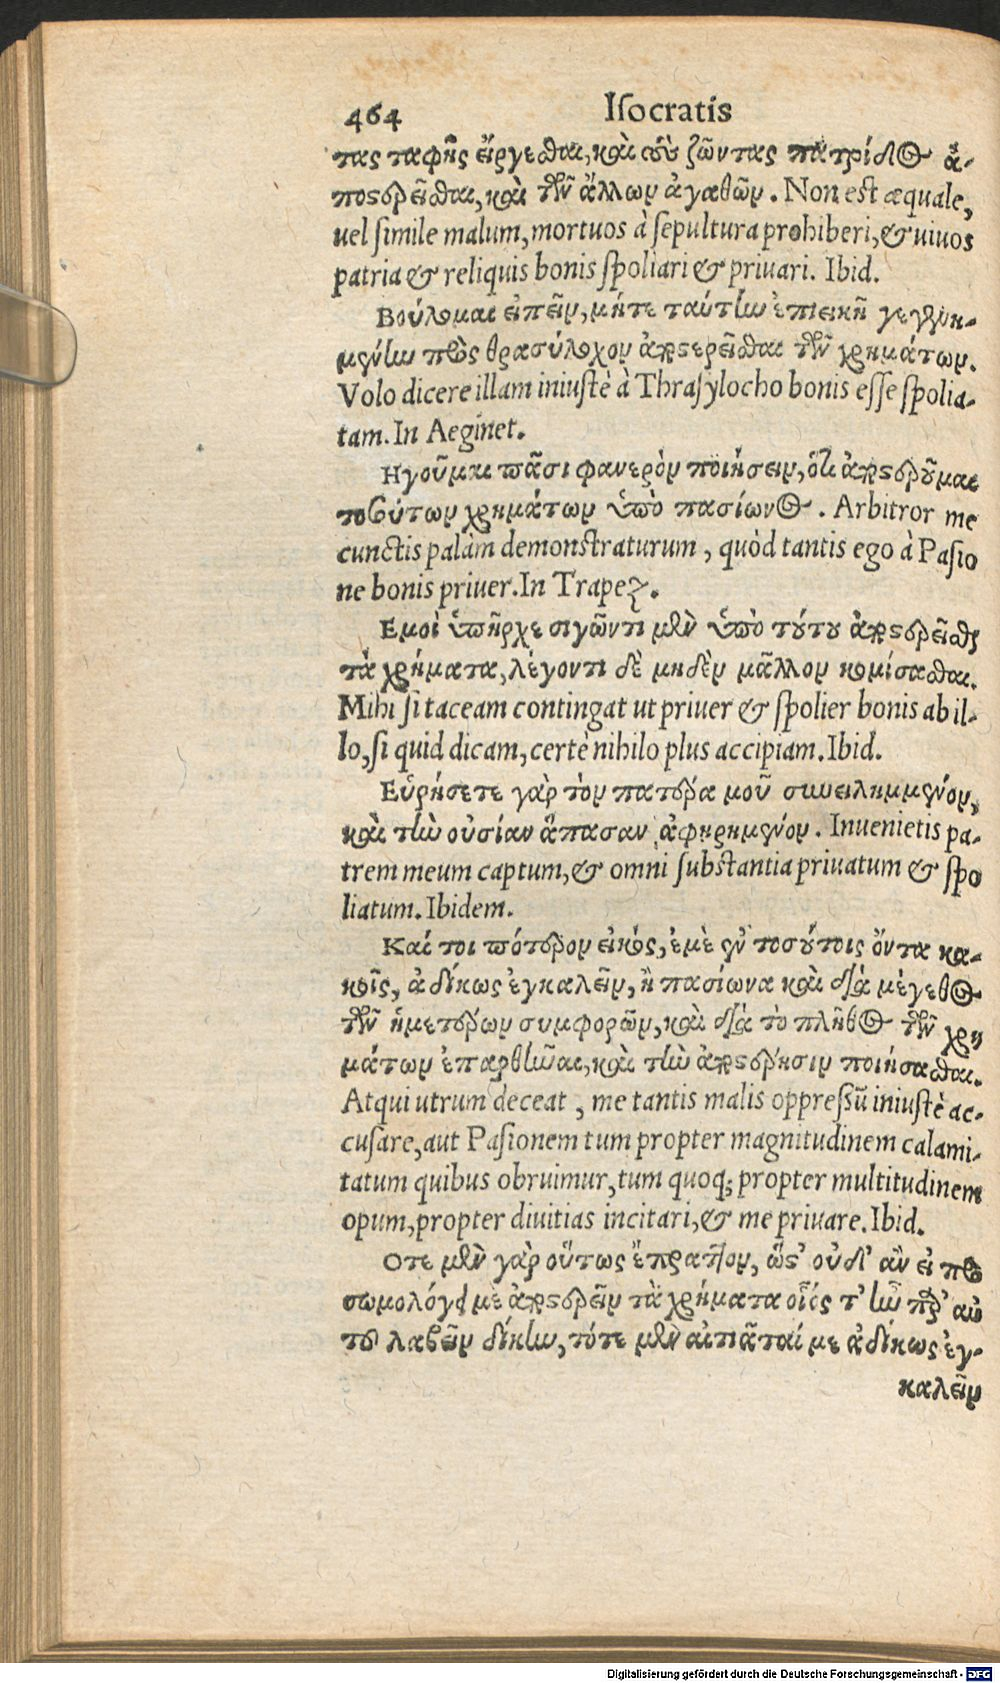 464 Iſocratis
τας ταφῆς εἴργεσθαι, καὶ τοὺς ζῶντας πατρίδος ἀ-
ποστερεῖσθαι, καὶ τῶν ἄλλων ἀγαθῶν. Non est æquale,
uel ſimile malum, mortuos à ſepultura prohiberi, & uiuos
patria & reliquis bonis ſpoliari & priuari. Ibid.
Βούλομαι εἰπεῖν, μήτε ταύτην ἐπιεικῆ γεγενη-
μένην πρὸς θρασύλοχον ἀποστερεῖσθαι τῶν χρημάτων.
Volo dicere illam iniuſtè à Thraſylocho bonis eſſe ſpolia-
tam. In Aeginet.
Ηγοῦμαι πᾶσι φανερὸν ποιήσειν, ὅτι ἀποστεροῦμαι
τοσούτων χρημάτων ὑπὸ πασίωνος. Arbitror me
cunctis palàm demonstraturum, quòd tantis ego à Paſio
ne bonis priuer. In Trapez.
Εμοὶ ὑπῆρχε σιγῶντι μὲν ὑπὸ τούτου ἀποστερεῖσθαι
τὰ χρήματα, λέγοντι δὲ μηδὲν μᾶλλον κομίσασθαι.
Mihi ſi taceam contingat ut priuer & ſpolier bonis ab il-
lo, ſi quid dicam, certè nihilo plus accipiam. Ibid.
Εὑρήσετε γὰρ τὸν πατέρα μοῦ συνειλημμένον,
καὶ τὴν οὐσίαν ἅπασαν ἀφῃρημένον. Inuenietis pa-
trem meum captum, & omni ſubstantia priuatum & ſpo
liatum. Ibidem.
Καί τοι πότερον εἰκὸς, ἐμὲ ἐν τοσούτοις ὄντα κα-
κοῖς, ἀδίκως ἐγκαλεῖν, ἢ πασίωνα καὶ διὰ μέγεθος
τῶν ἡμετέρων συμφορῶν, καὶ διὰ τὸ πλῆθος τῶν χρη
μάτων ἐπαρθῆναι, καὶ τὴν ἀποστέρησιν ποιήσασθαι.
Atqui utrum deceat, me tantis malis oppreſſū iniuſtè ac-
cuſare, aut Paſionem tum propter magnitudinem calami-
tatum quibus obruimur, tum quoq; propter multitudinem
opum, propter diuitias incitari, & me priuare. Ibid.
Οτε μὲν γὰρ οὕτως ἔπραττον, ὥστ' οὐδ' ἂν εἰ προ
σωμολόγει με ἀποστερεῖν τὰ χρήματα οἷός τ' ἦν παρ' αὐ
τοῦ λαβεῖν δίκην, τότε μὲν αἰτιᾶταί με ἀδίκως ἐγ-
καλεῖν
Digitalisierung gefördert durch die Deutsche Forschungsgemeinschaft - DFG